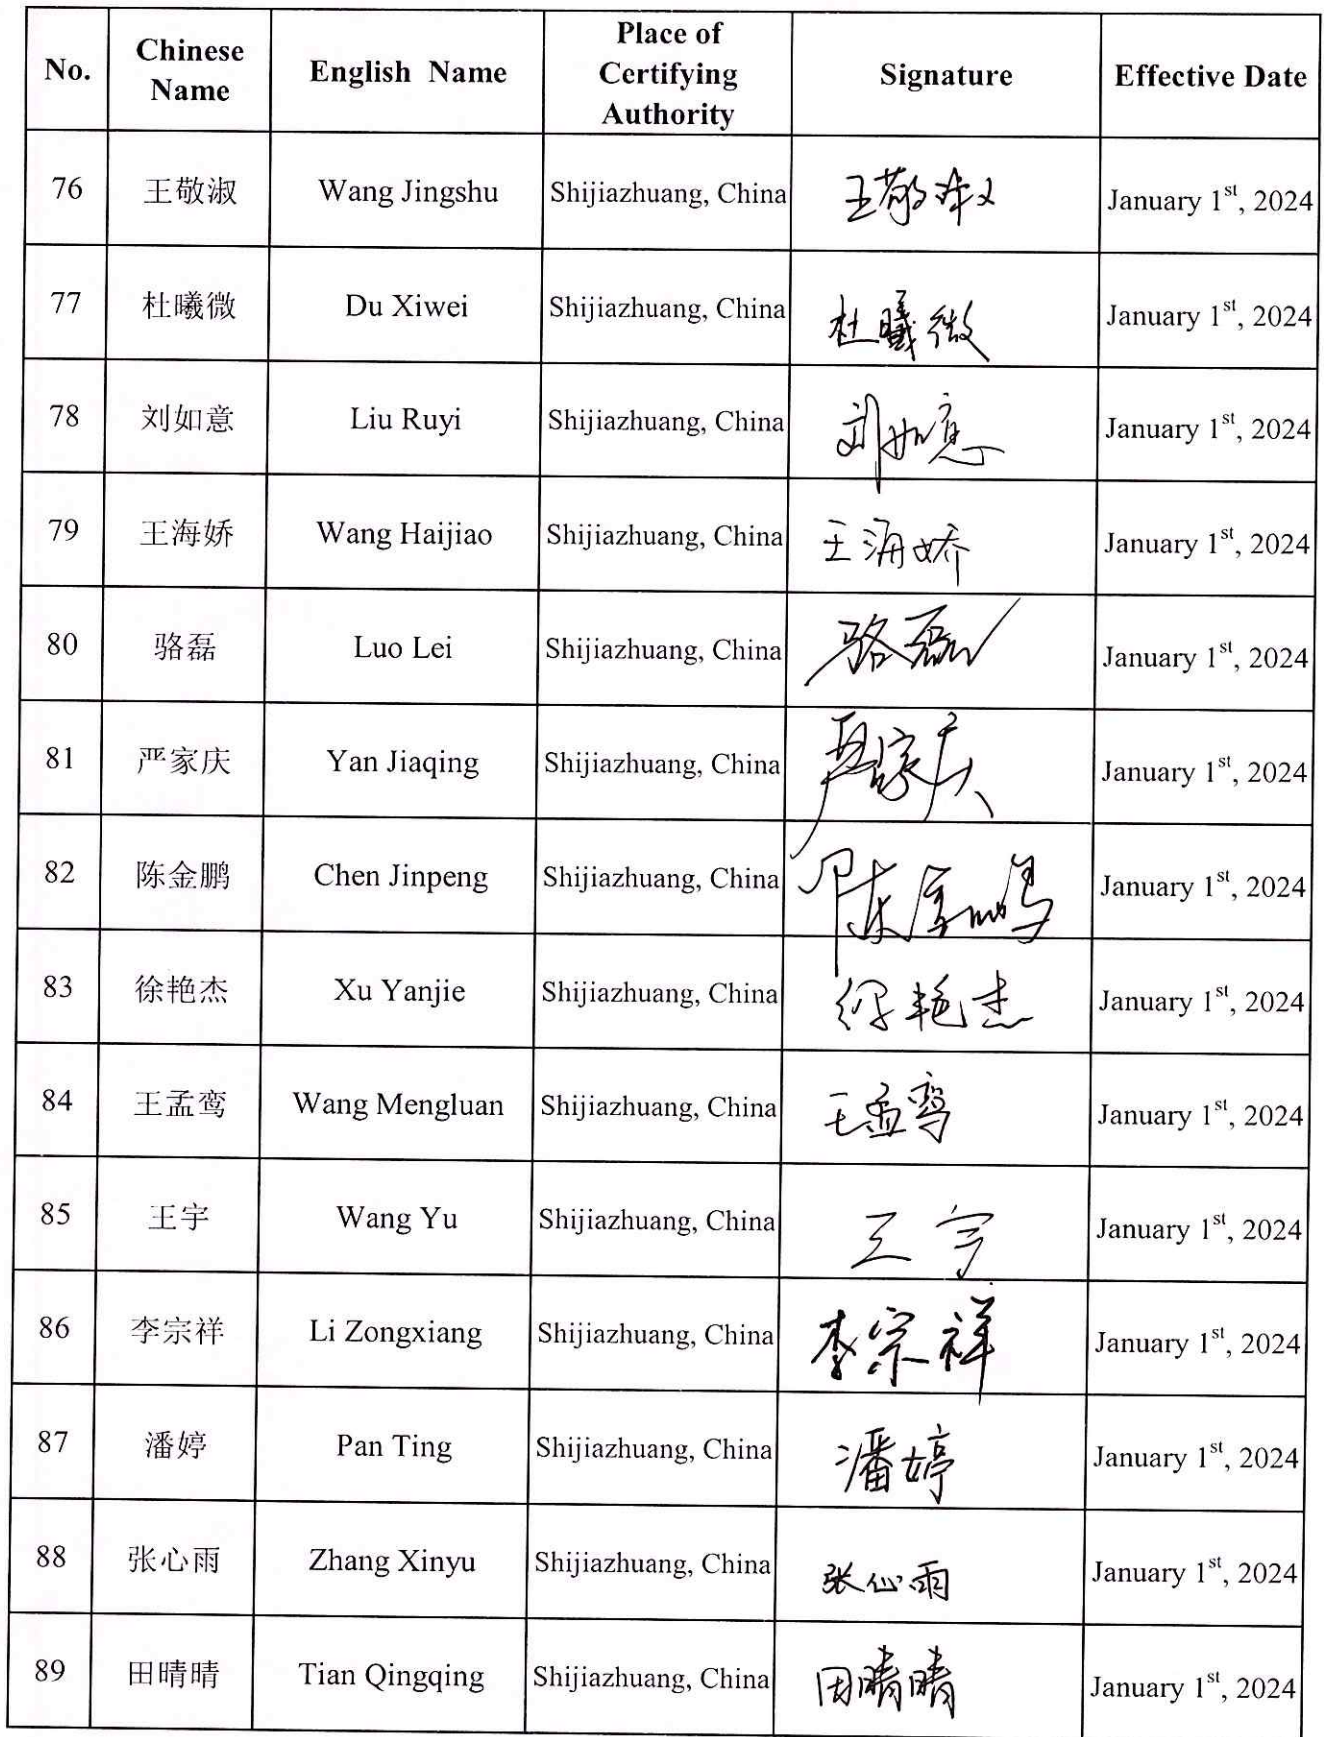 No. Chinese Name English Name Place of Certifying Authority Signature Effective Date
76 王敬淑 Wang Jingshu Shijiazhuang, China 王敬淑 January 1st, 2024
77 杜曦微 Du Xiwei Shijiazhuang, China 杜曦微 January 1st, 2024
78 刘如意 Liu Ruyi Shijiazhuang, China 刘如意 January 1st, 2024
79 王海娇 Wang Haijiao Shijiazhuang, China 王海娇 January 1st, 2024
80 骆磊 Luo Lei Shijiazhuang, China 骆磊 January 1st, 2024
81 严家庆 Yan Jiaqing Shijiazhuang, China 严家庆 January 1st, 2024
82 陈金鹏 Chen Jinpeng Shijiazhuang, China 陈金鹏 January 1st, 2024
83 徐艳杰 Xu Yanjie Shijiazhuang, China 徐艳杰 January 1st, 2024
84 王孟鸾 Wang Mengluan Shijiazhuang, China 王孟鸾 January 1st, 2024
85 王宇 Wang Yu Shijiazhuang, China 王宇 January 1st, 2024
86 李宗祥 Li Zongxiang Shijiazhuang, China 李宗祥 January 1st, 2024
87 潘婷 Pan Ting Shijiazhuang, China 潘婷 January 1st, 2024
88 张心雨 Zhang Xinyu Shijiazhuang, China 张心雨 January 1st, 2024
89 田晴晴 Tian Qingqing Shijiazhuang, China 田晴晴 January 1st, 2024